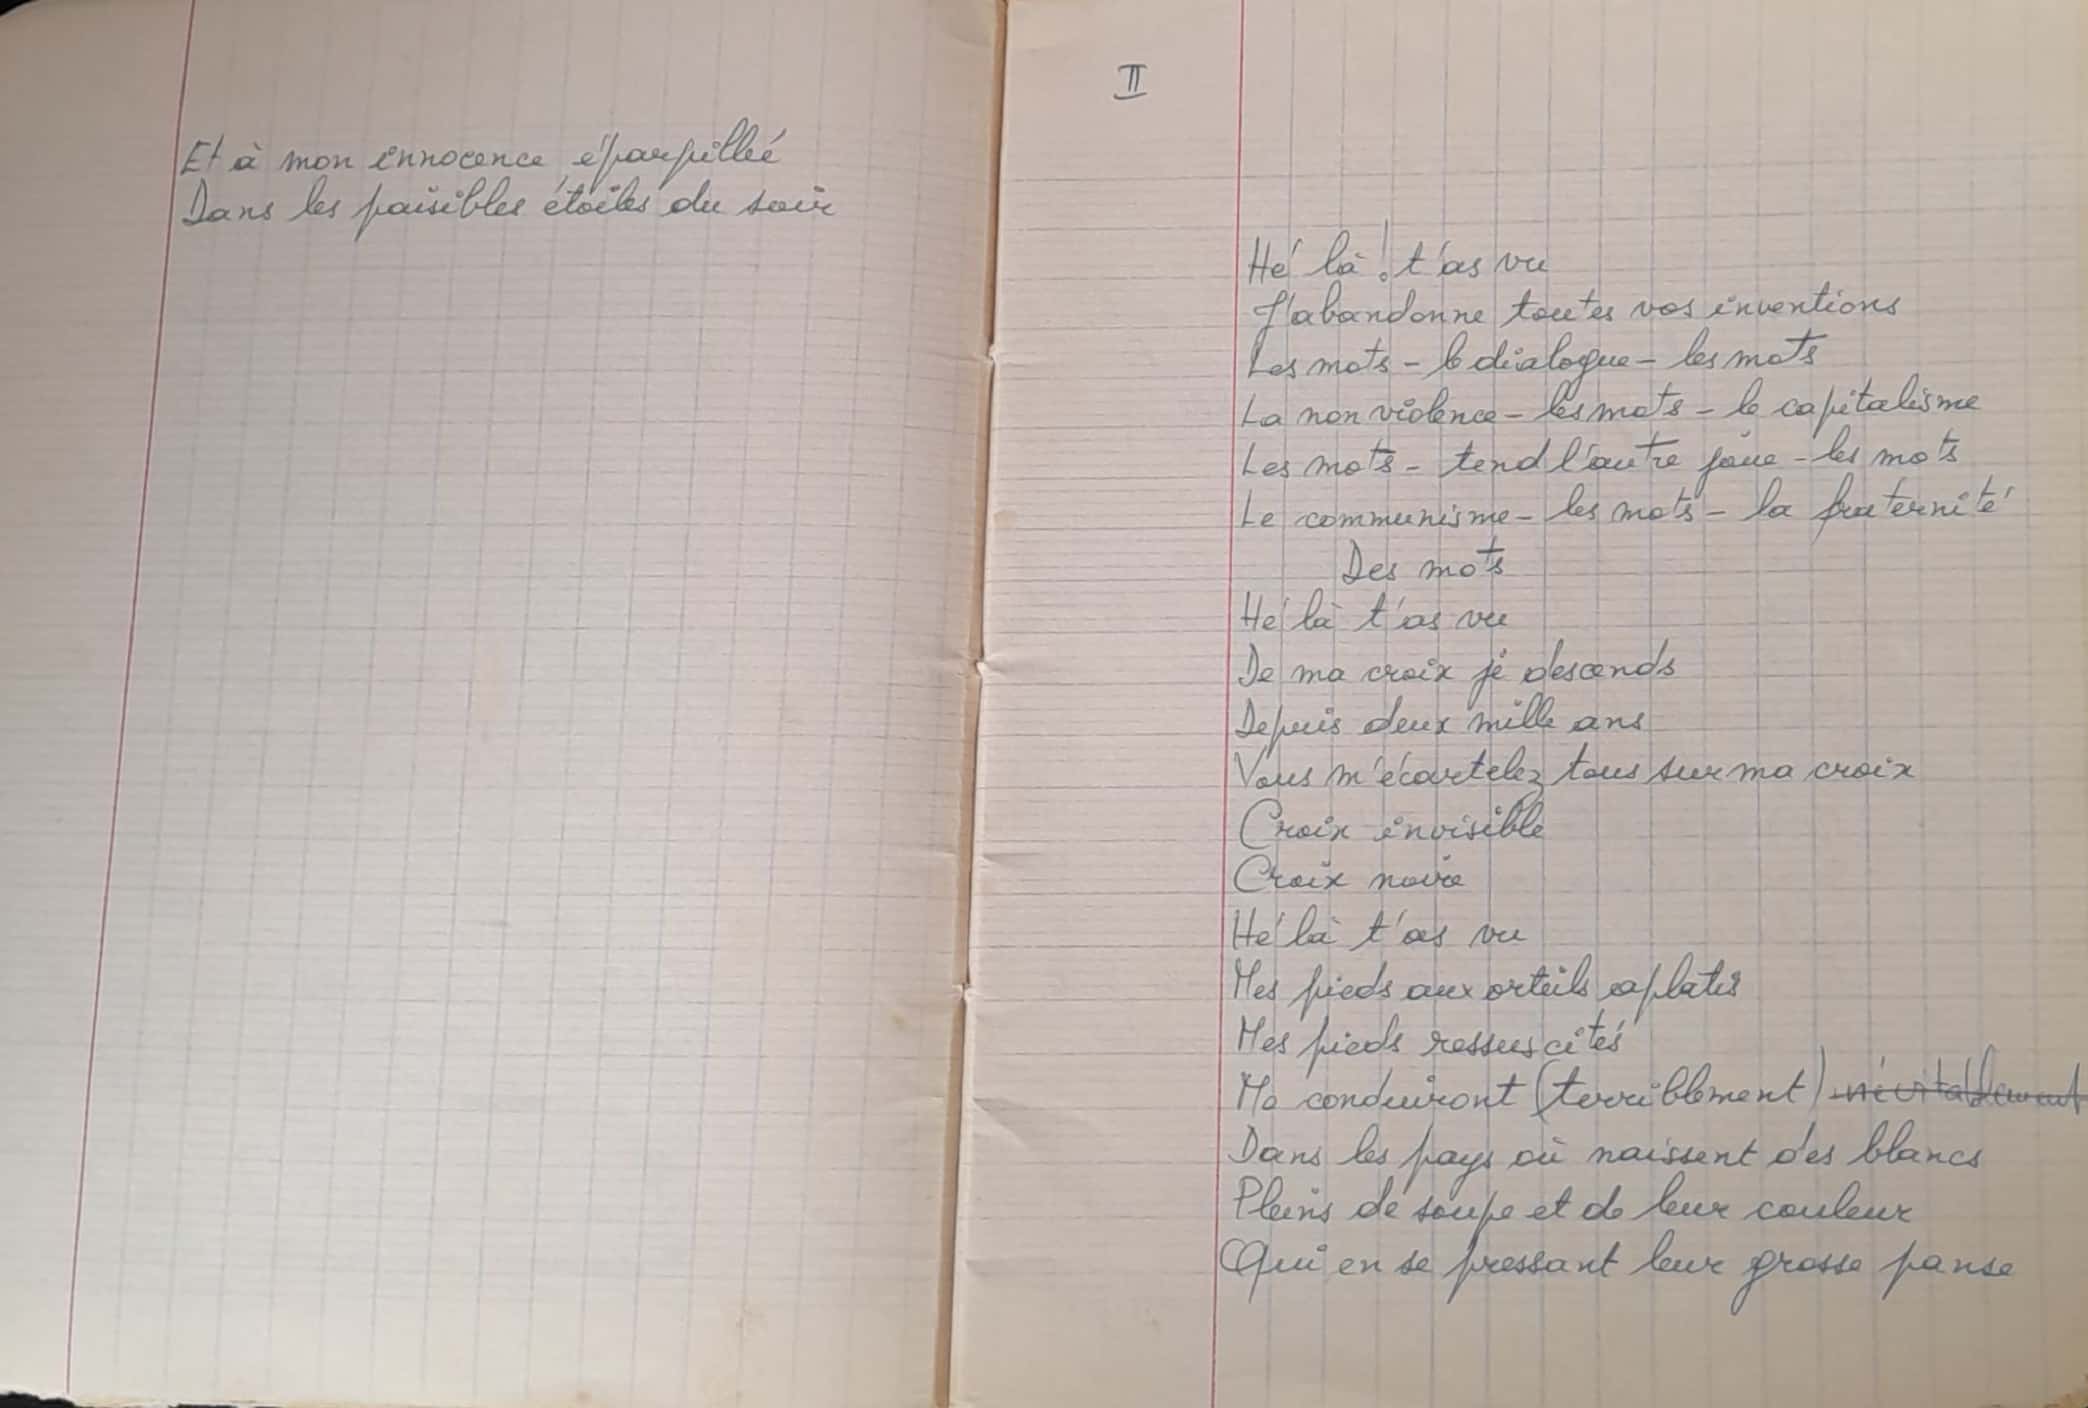 Et à mon innocence éparpillée
Dans les paisibles étoiles du soir
II
Hé là ! t'as vu
J'abandonne toutes vos inventions
Les mots - le dialogue - les mots
La non violence - les mots - le capitalisme
Les mots - tend l'autre joue - les mots
Le communisme - les mots - la fraternité
Des mots
Hé là t'as vu
De ma croix je descends
Depuis deux mille ans
Vous m'écartelez tous sur ma croix
Croix invisible
Croix noire
Hé là t'as vu
Mes pieds aux orteils aplatis
Mes pieds ressuscités
Me conduiront (terriblement) inévitablement
Dans les pays où naissent des blancs
Pleins de soupe et de leur couleur
Qui en se pressant leur grosse panse